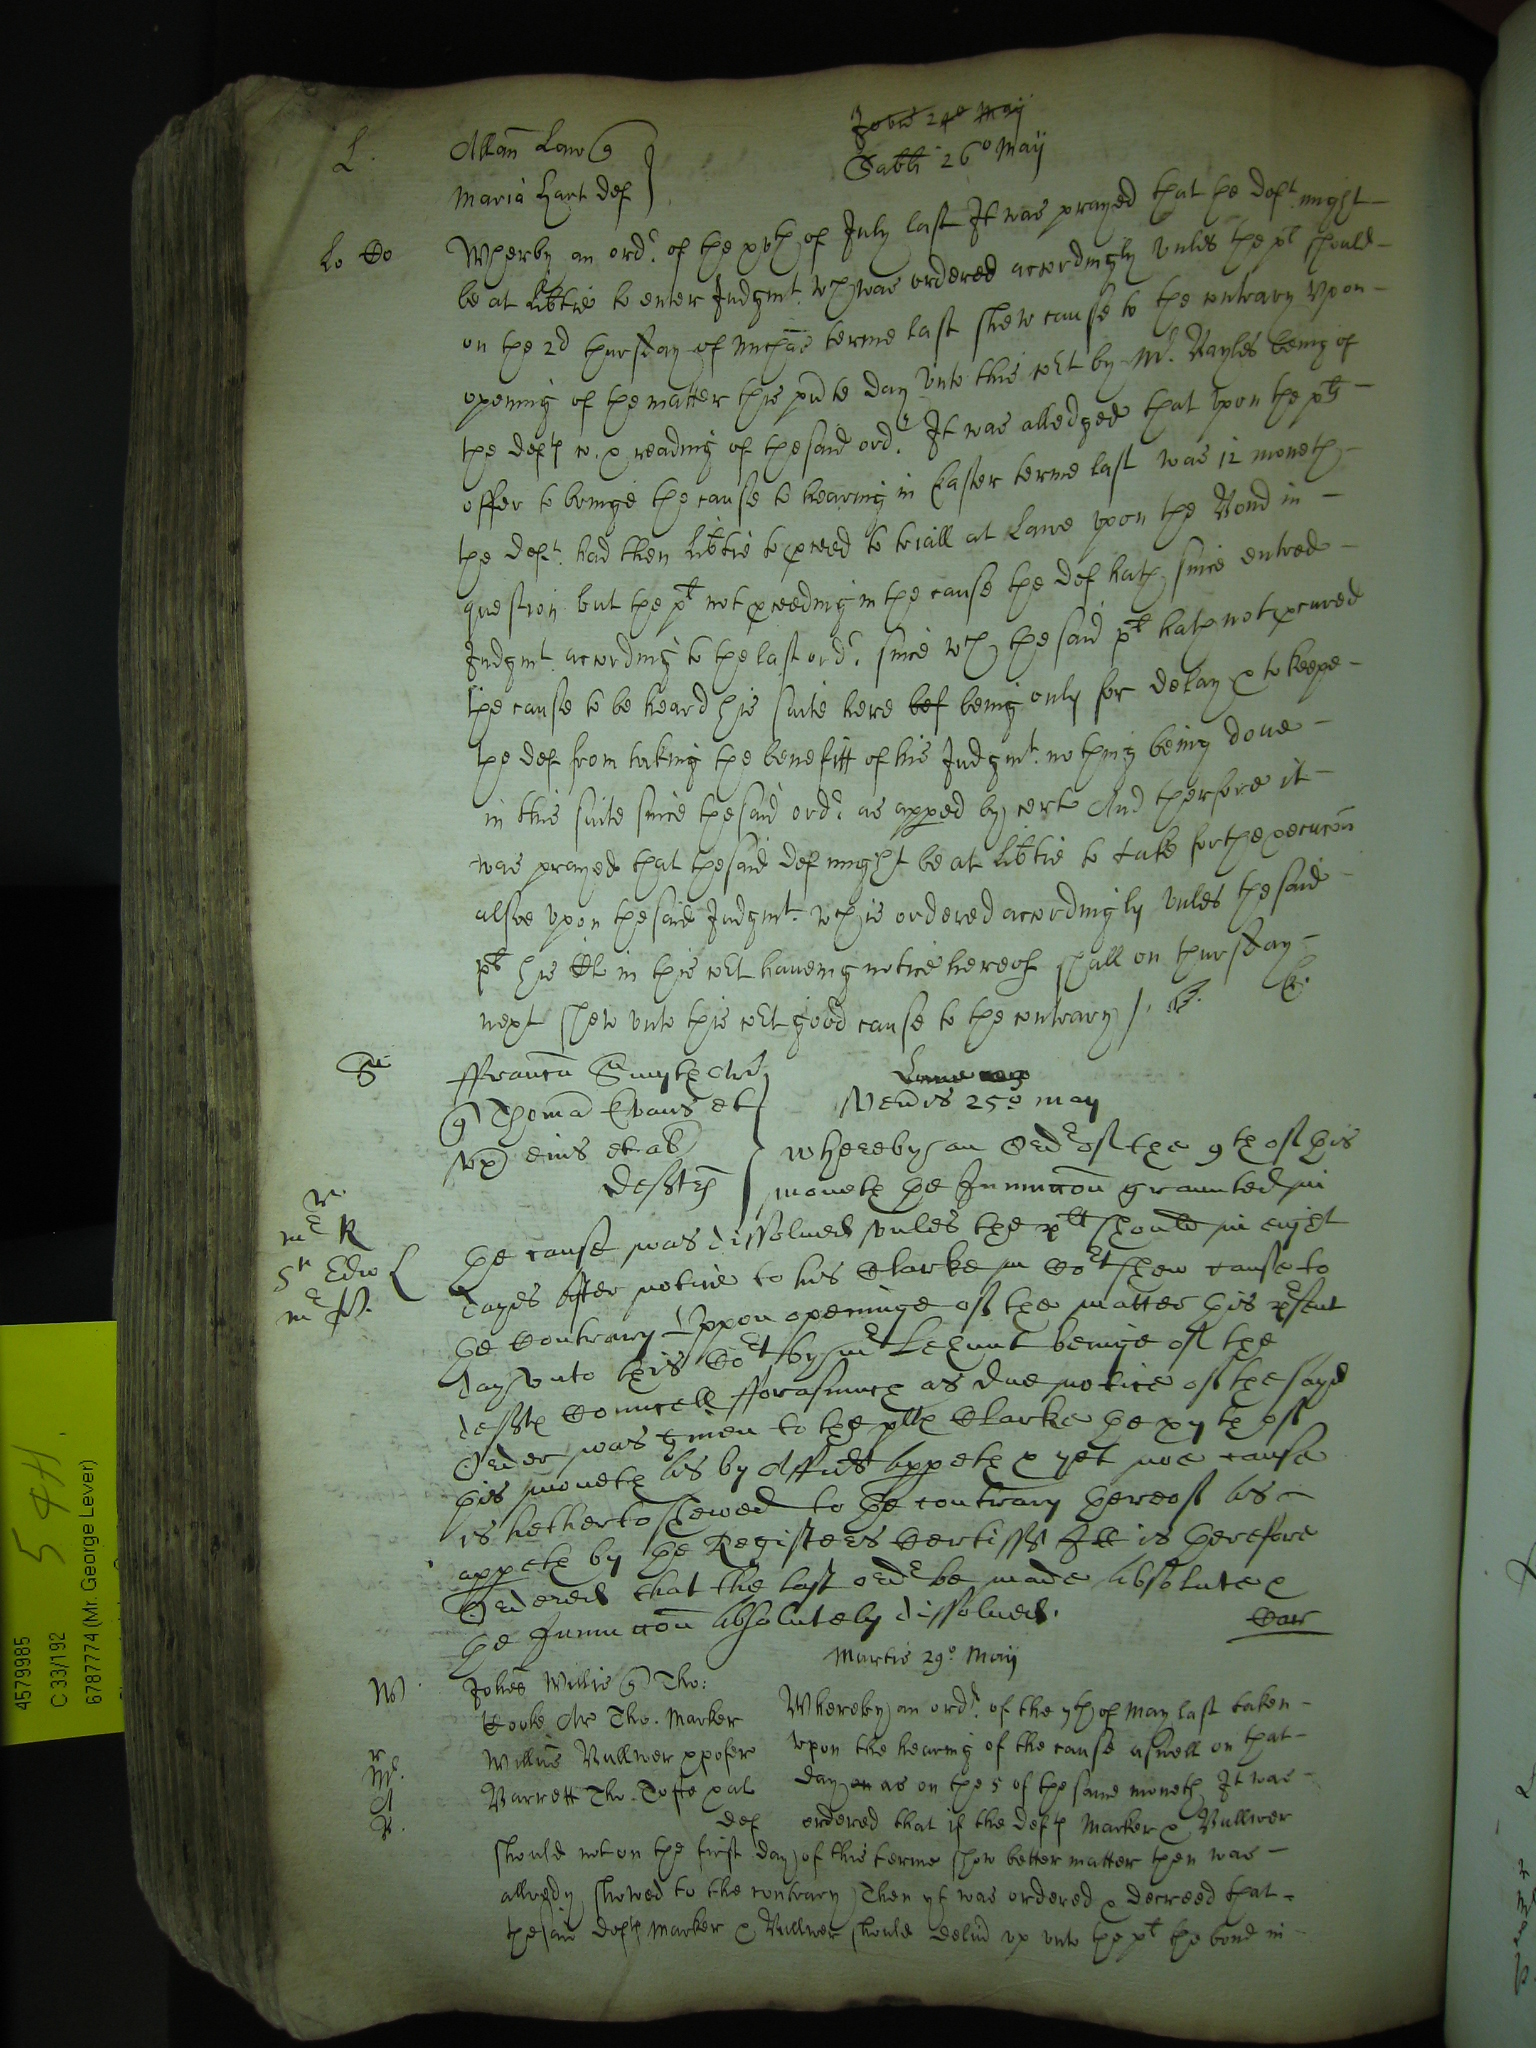 L. Allan Law q
Jovis 24º May
Sabbti 26º Maij
Maria Hart def
Lo Co Wherby an ordr. of the xvth of July last It was prayed that he deft. might
be at libtie to enter Judgmt. wch was ordered accordingly unles the plt should
on the 2d thursday of Michās terme last shew cause to the contrary Upon
opening of the matter this pñte day unto this cort by Mr. Bayles being of
the defts c. & reading of the said ordr. It was alledged that upon the plts
offer to bringe the cause to hearing in Easter terme last was 12 moneth
the deft. had then libtie to pceed to triall at Lawe upon the Bond in
question but the plt not pceeding in the cause the def hath since entred
Judgmt. according to the last ordr. since wch the said plt hath not pcured
the cause to be heard his suite here bef being only for delay & to keepe
the def from taking the benefitt of his Judgmt. nothing being done
in this suite since the said ordr. as apped by cert And therfore it
was prayed that the said def might be at libtie to take forth execucōn
alsoe upon the said Judgmt. wch is ordered accordingly unles the said
plt his Cl in this cort haveing notice hereof shall on thursday
next shew unto this cort good cause to the contrary
Sm ffrancū Smyth Ar
q Thoma Evans et
Venēris 25º May
ux eius et al
deffts
Whereby an Ordr of the 9th of this
moneth the Iniunccōn graunted in
mr R
Sr Edw L
mr P.
the cause was dissolved unles the plt should in eight
dayes after notice to his Clarke in Cort shew cause to
the Contrary Uppon openinge of the matter this prsent
day unto this Cort by mr beinge of the
deffts Councell fforasmuch as due notice of the sayd
Order was given to the plts Clarke the xyth of
this moneth as by Affidt appeth & yet noe cause
is hetherto shewed to the contrary hereof as
appeth by the Registers Certifft It is therefore
Ordered that the last ordr be made absolute &
the Iniunccōn absolutely dissolved.
Car
Martis 29º Maij
W Johēs Willis q Tho:
Cooke Ar Tho. Marker
Whereby an ordr. of the 7th of May last taken
Willmē Bullwer
upon the hearing of the cause aswell on that
Mr.
Barrett Tho. Tofte & al
day on as on the 5 of the same moneth It was
def
ordered that if the defts Marker & Bullwer
should not on the first day of this terme shew better matter then was
allredy shewed to the contrary Then yt was ordered & decreed that
the said defts Marker & Bullwer should delivr up unto the plt the bond in
5 4H.
4579985
C 33/192
6787774 (Mr. George Lever)